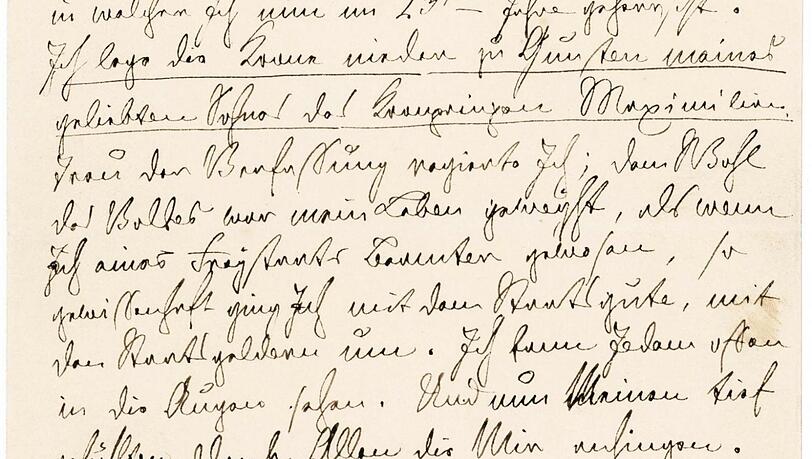 in welcher Ich nun im 23t – Jahre gehöre, ist.
Ich lege die Krone nieder zu Gunsten meines
geliebten Sohnes des Kronprinzen Maximilian.
Treu der Verfassung regierte Ich; dem Wohl
des Volkes war mein Leben geweyht, als wenn
Ich eines Freystaats Beamter gewesen, so
gewissenhaft ging Ich mit dem Staatsgute, mit
den Staatsgeldern um. Ich kann Jedem offen
in die Augen sehen. Und nun Meinen tief
gefühlten Dank Allen die Mir anhingen.